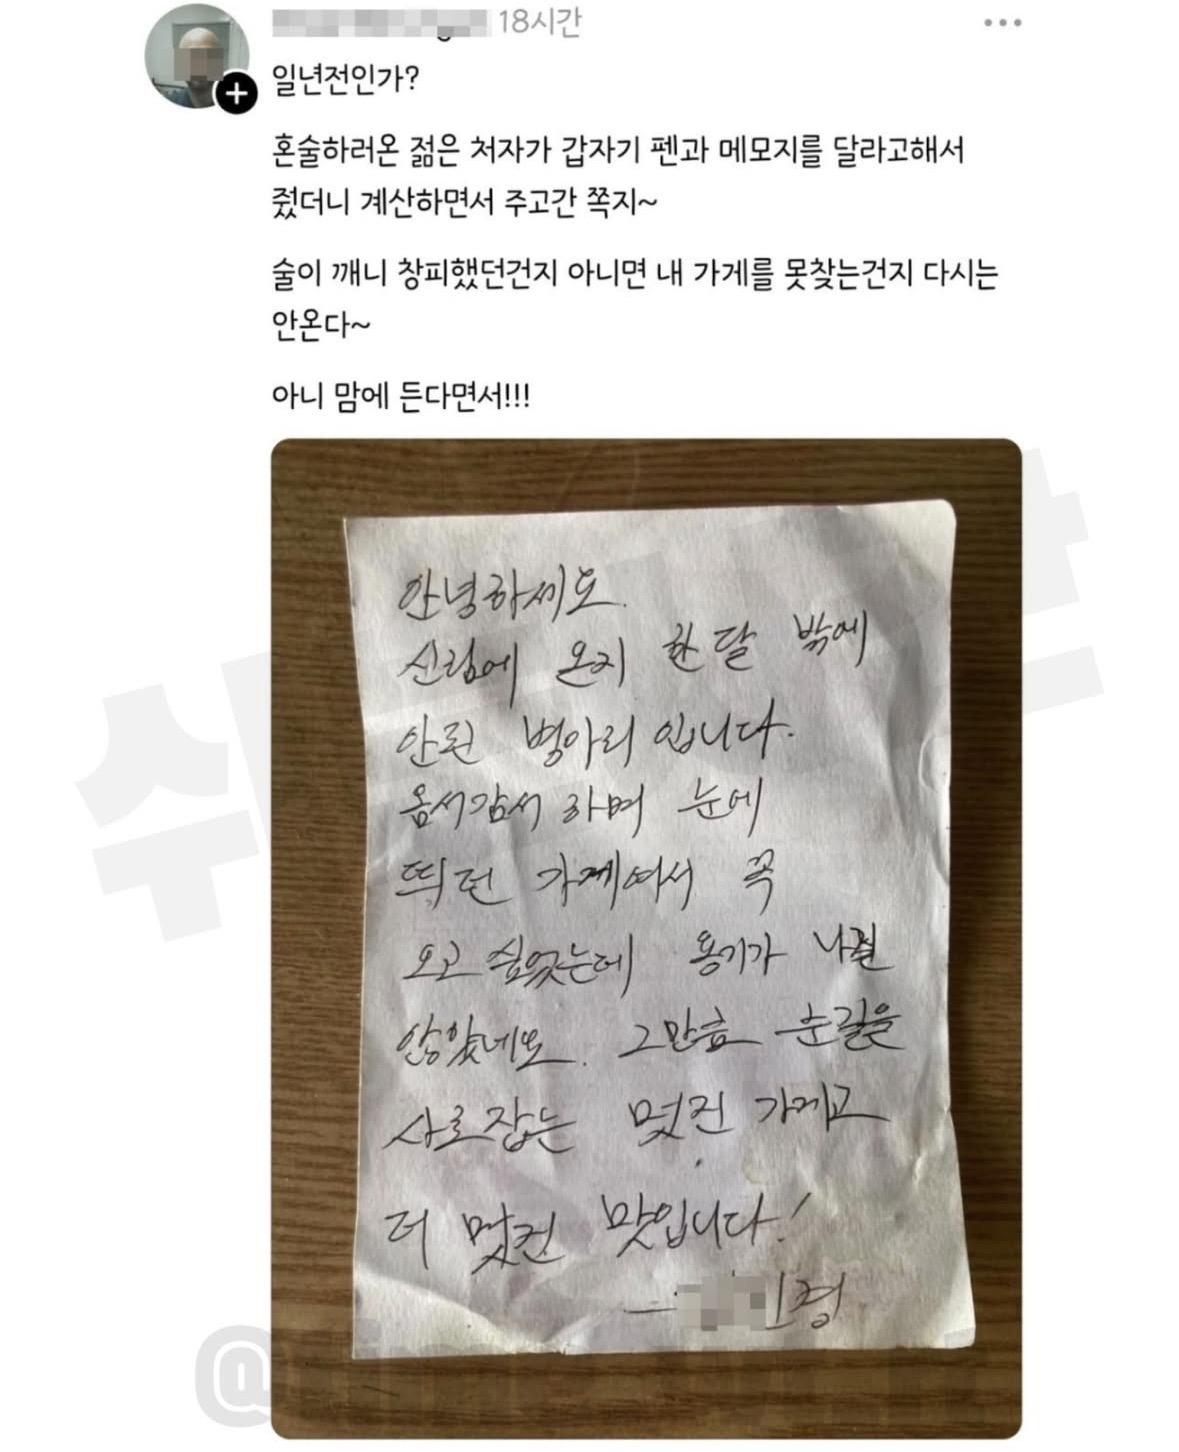 18시간
일년전인가?
혼술하러온 젊은 처자가 갑자기 펜과 메모지를 달라고해서
줬더니 계산하면서 주고간 쪽지~
술이 깨니 창피했던건지 아니면 내 가게를 못찾는건지 다시는
안온다~
아니 맘에 든다면서!!!
안녕하세요.
신림에 온지 한달 밖에
안된 병아리 입니다.
옴서감서 하며 눈에
띄던 가게여서 꼭
오고 싶었는데 용기가 나질
않았네요. 그만큼 눈길을
사로잡는 멋진 가게고
더 멋진 맛입니다!